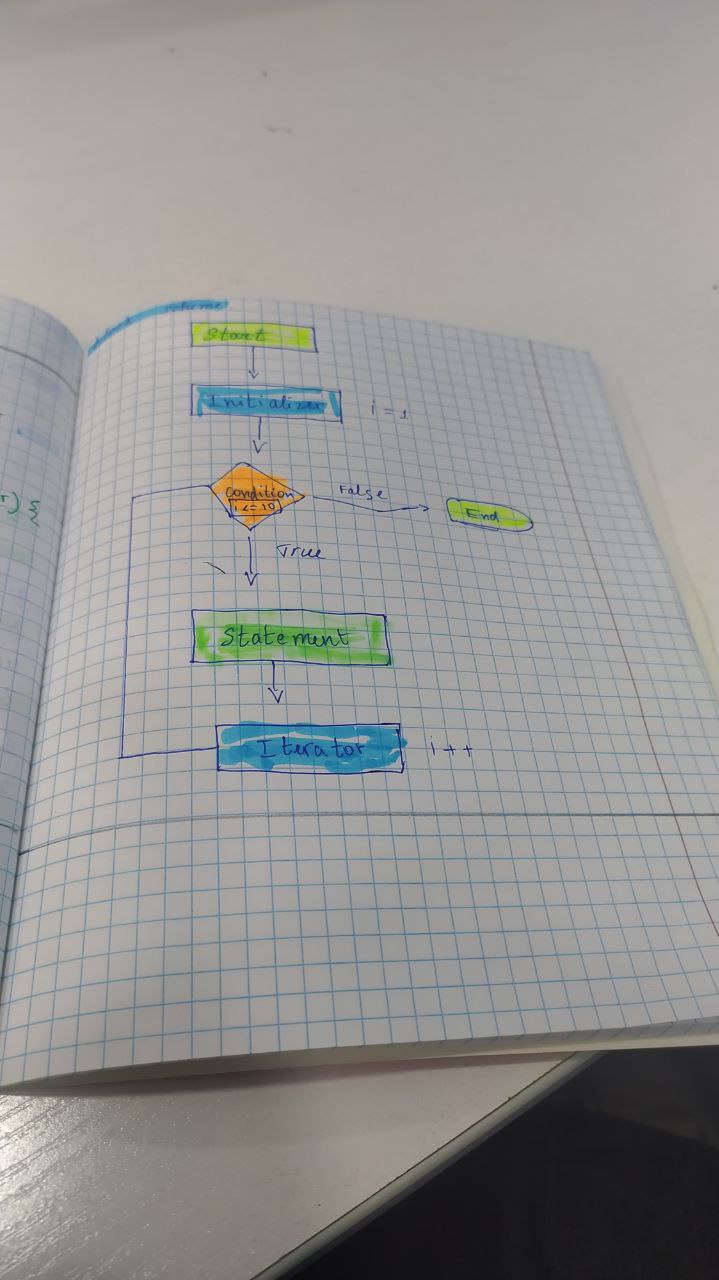 block scheme
Start
Initializer
i = 1
Condition
i <= 10
False
End
True
Statement
Iterator
i ++
r) {